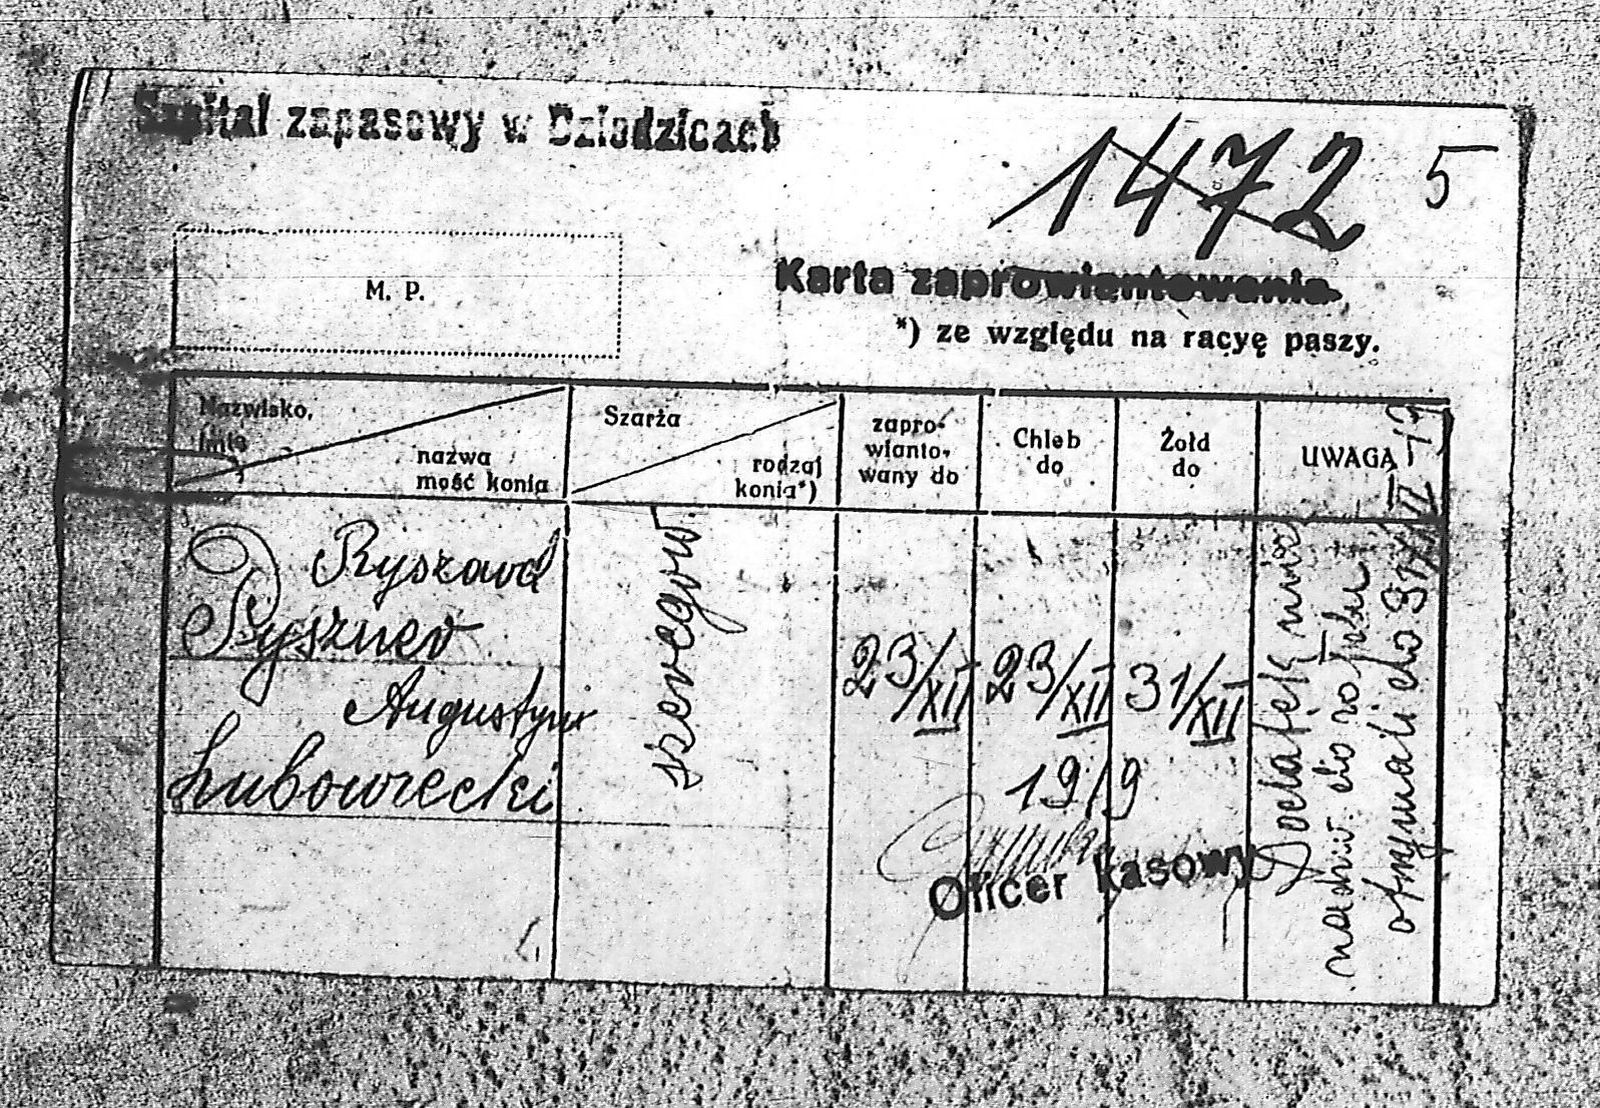 Szpital zapasowy w Dziedzicach
1472 5
M. P.
Karta zaprowiantowania
*) ze względu na racyę paszy.
Nazwisko, imię
nazwa
mość konia
Szarża
rodzaj
konia*)
zapro-
wianto-
wany do
Chleb
do
Żołd
do
UWAGA
Ryszard
Pysznev
szeregow.
23/XII 23/XII 31/XII
1919
Augustyn
Lubowiecki
Oficer kasowy
Dodatek
otrzymali do 31/XII 19